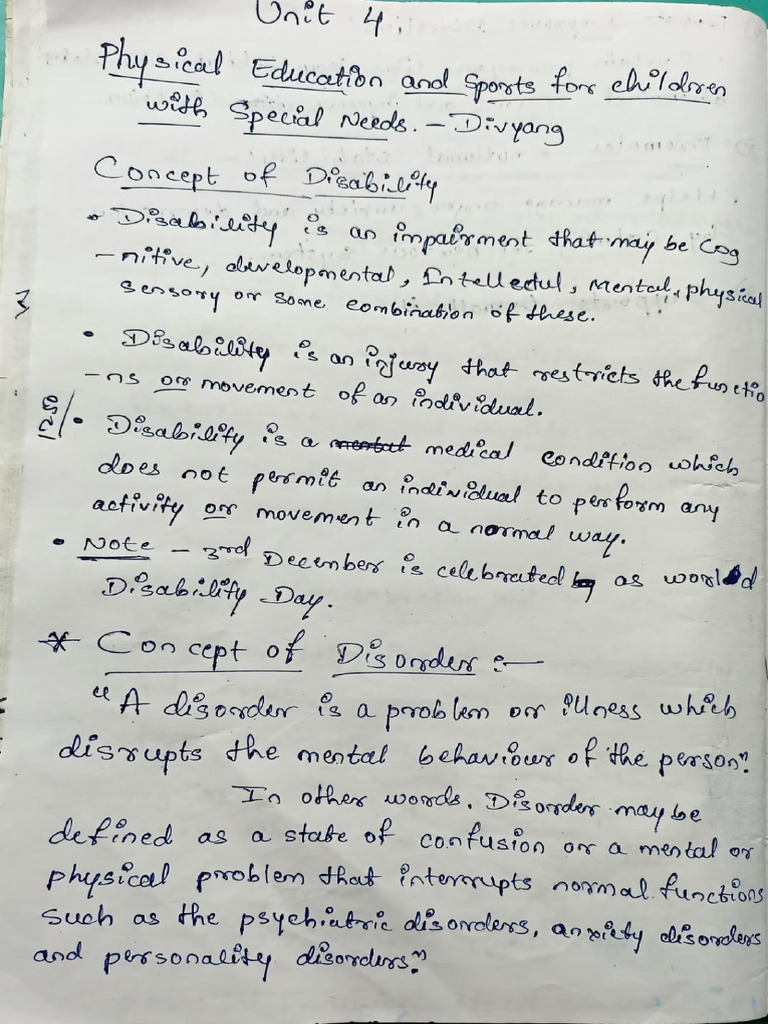 Unit 4.
Physical Education and Sports for children
with Special Needs. - Divyang
Concept of Disability
• Disability is an impairment that may be Cog
-nitive, developmental, Intellectul, Mental, physical
sensory or some combination of these.
• Disability is an injury that restricts the functio
-ns or movement of an individual.
• Disability is a mental medical condition which
does not permit an individual to perform any
activity or movement in a normal way.
• Note - 3rd December is celebrated by as world
Disability Day.
* Concept of Disorder :-
"A disorder is a problem or illness which
disrupts the mental behaviour of the person".
In other words. Disorder may be
defined as a state of confusion or a mental or
physical problem that interrupts normal functions
such as the psychiatric disorders, anxiety disorders
and personality disorders."